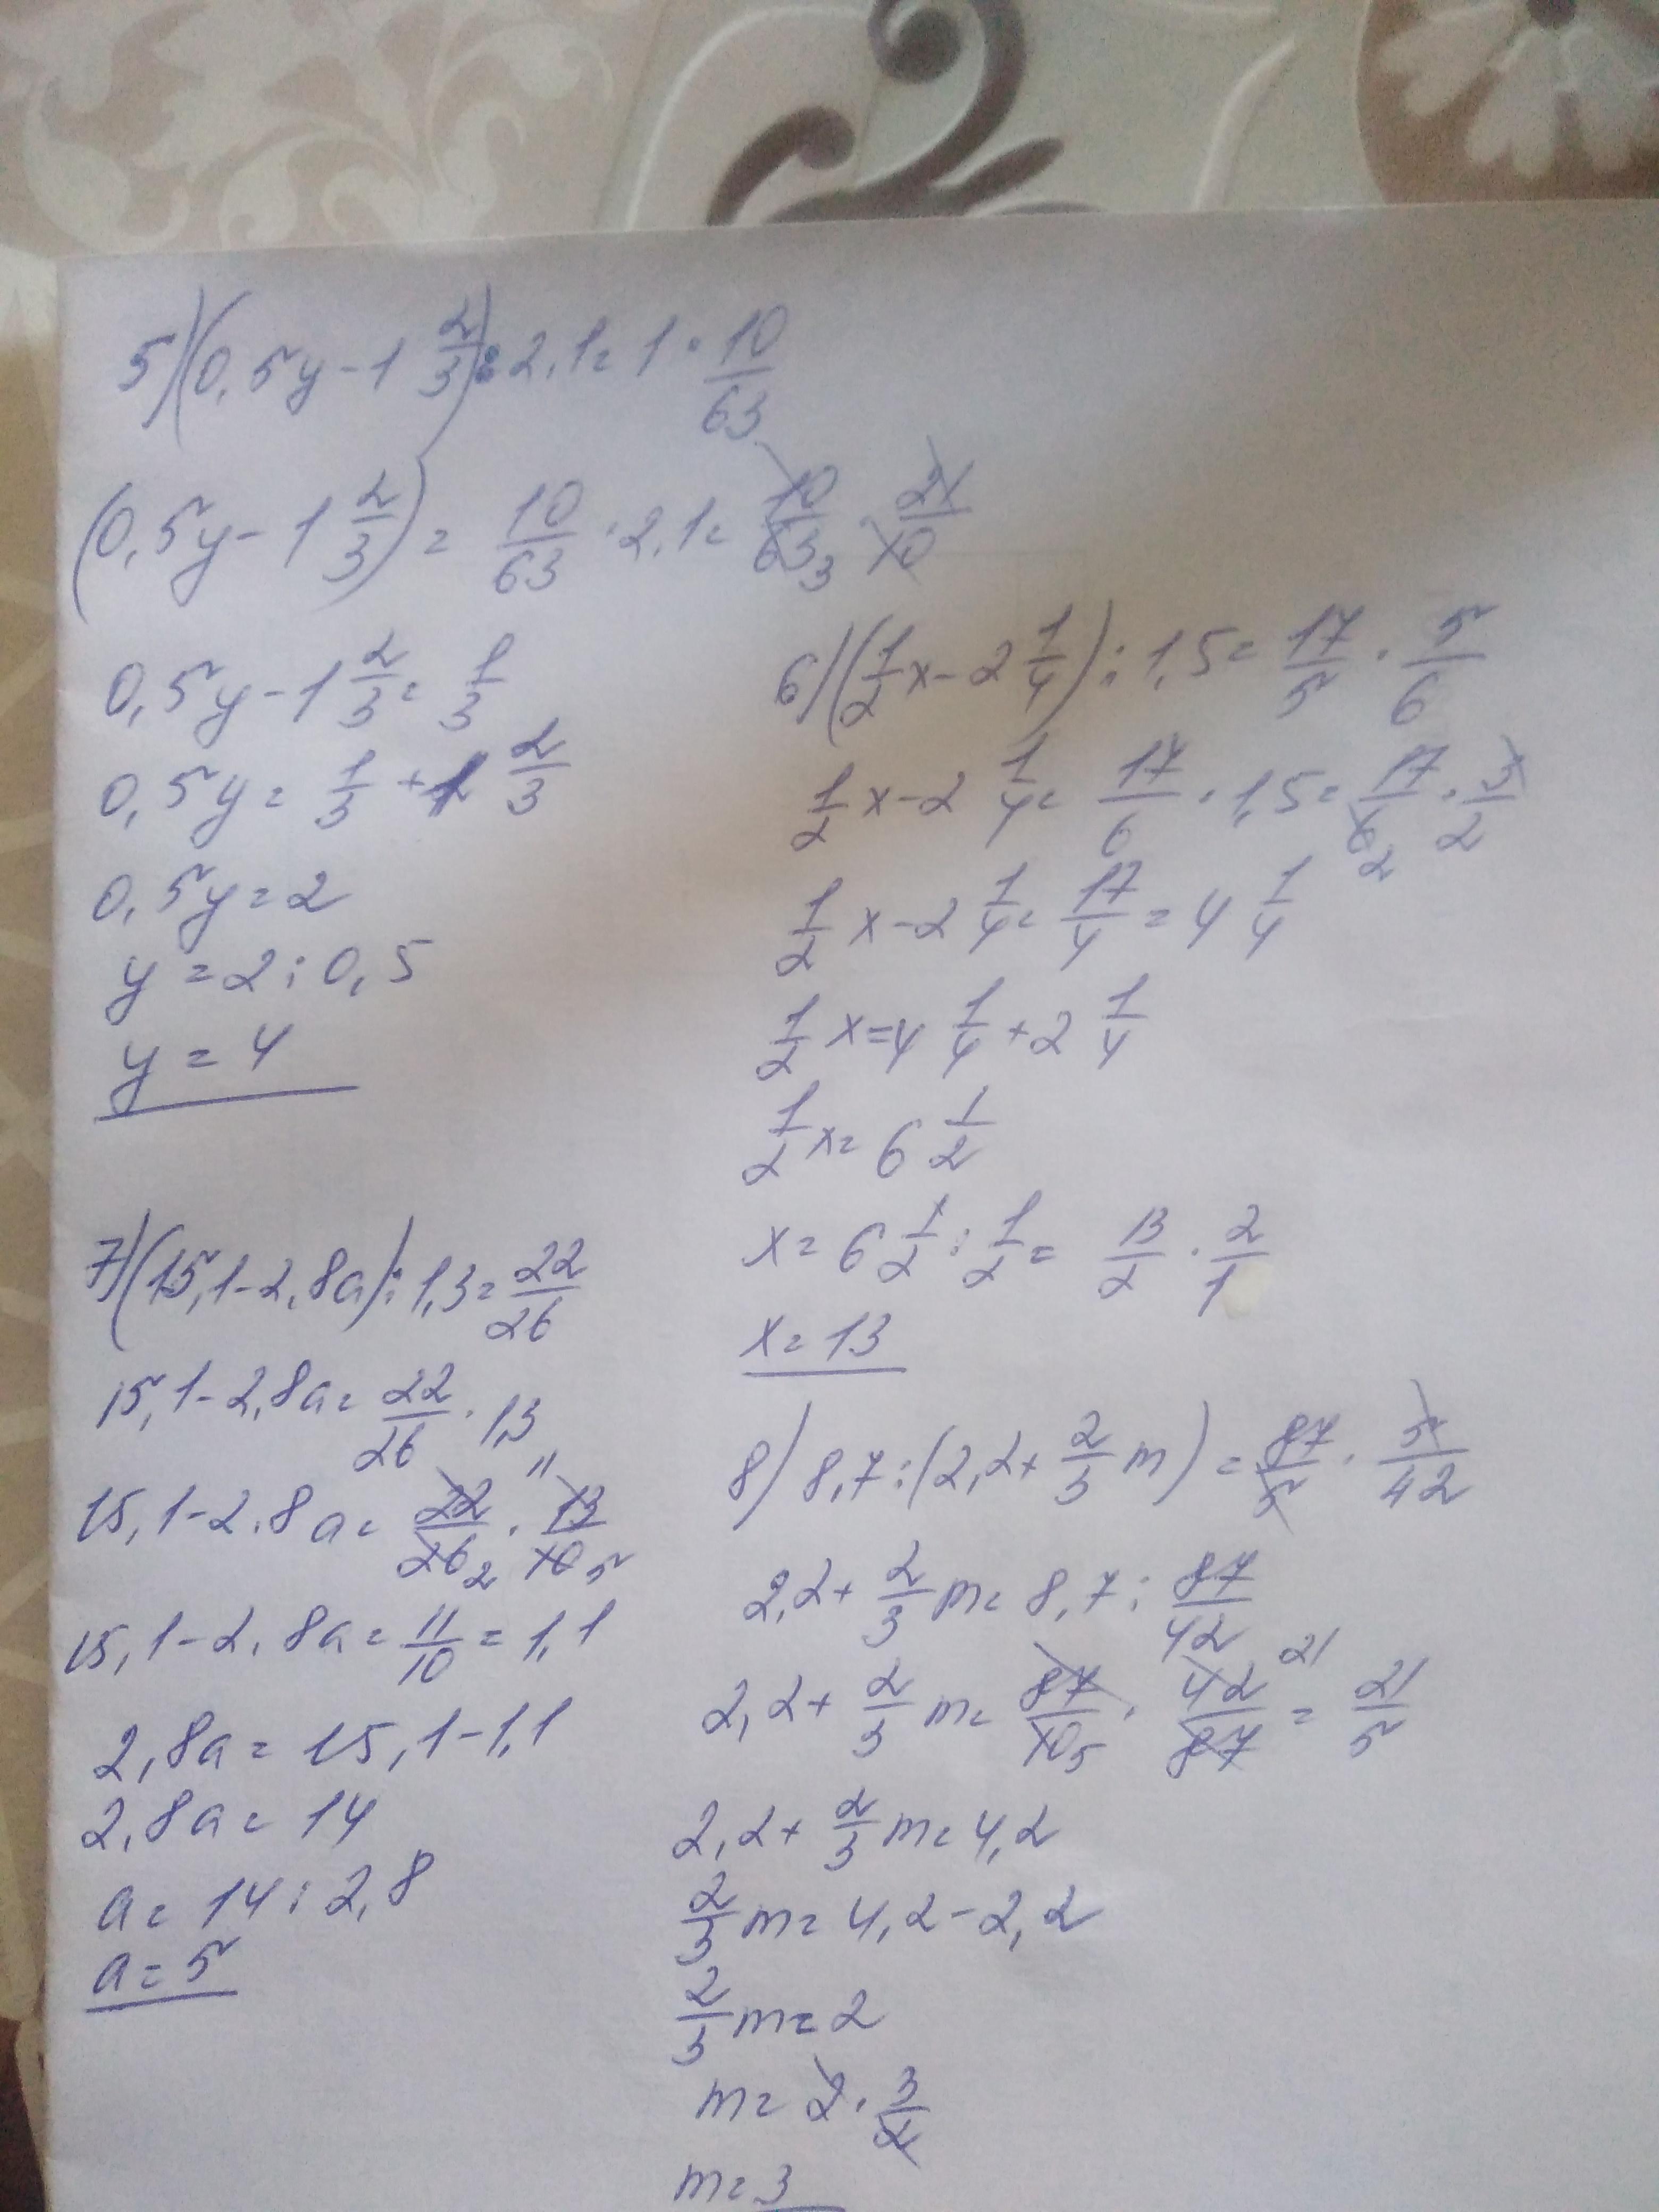 5) (0,5y - 1 2/3) : 2,1 = 1 · 10/63
(0,5y - 1 2/3) = 10/63 · 2,1 = 10/63 3 · 21/10
0,5y - 1 2/3 = 1/3
0,5y = 1/3 + 1 2/3
0,5y = 2
y = 2 : 0,5
y = 4
6) (1/2 x - 2 1/4) : 1,5 = 17/5 · 5/6
1/2 x - 2 1/4 = 17/6 · 1,5 = 17/6 2 · 3/2
1/2 x - 2 1/4 = 17/4 = 4 1/4
1/2 x = 4 1/4 + 2 1/4
1/2 x = 6 1/2
x = 6 1/2 : 1/2 = 13/2 · 2/1
x = 13
7) (15,1 - 2,8a) : 1,3 = 22/26
15,1 - 2,8a = 22/26 · 1,3
15,1 - 2.8a = 22/26 2 · 13/10 5 11
15,1 - 2,8a = 11/10 = 1,1
2,8a = 15,1 - 1,1
2,8a = 14
a = 14 : 2,8
a = 5
8) 8,7 : (2,2 + 2/3 m) = 87/5 · 5/42
2,2 + 2/3 m = 8,7 : 87/42
2,2 + 2/3 m = 87/10 5 · 42/87 21 = 21/5
2,2 + 2/3 m = 4,2
2/3 m = 4,2 - 2,2
2/3 m = 2
m = 2 · 3/2
m = 3